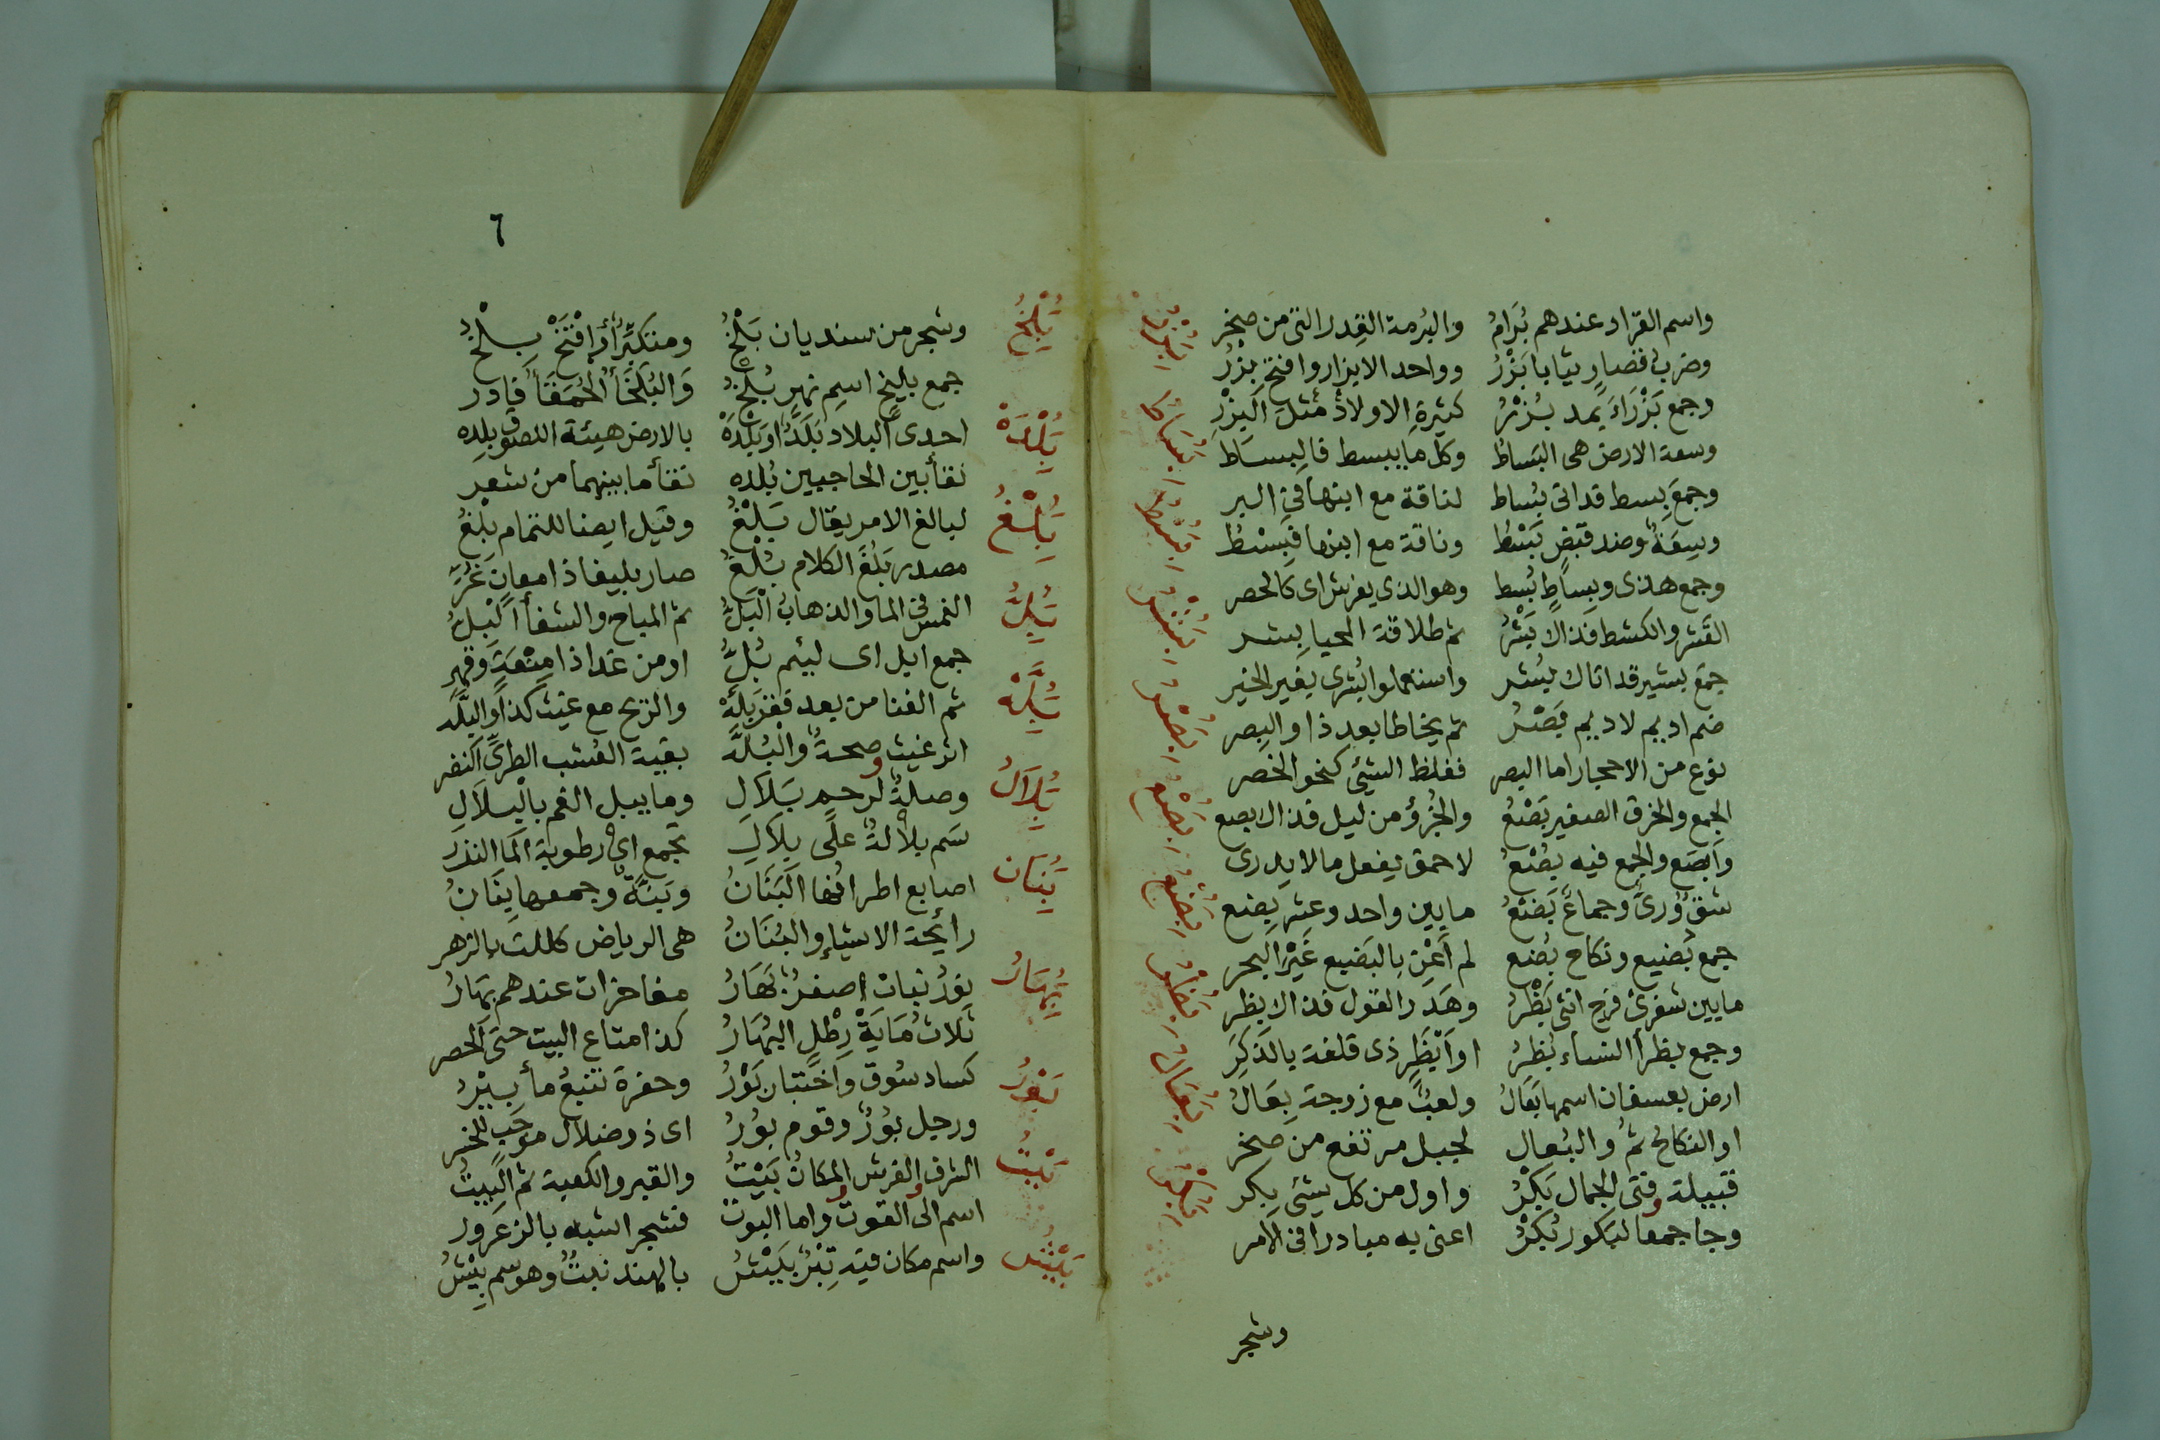 واسم القراد عندهم بُرَامُ والبُرمة القِدر التى من صخر
وضرب قصار ثيابا بَزْرُ وواحد الابزار وافتح بِزرُ
وجمع بَزْرَاءَ يُمد بُزْرُ كثيرةِ الاولاد مثل البَزْرِ
وسعة الارض هى البَسَاطُ وكل ما يبسط فالبِسَاطُ
وجمعَ بِسط قد اتى بُساط لناقة مع ابنها فى البر
وسِعَةٌ وضد قبض بَسْطُ وناقة مع ابنها فبِسْطُ
وجمع هذى وبِساطٍ بُسط وهو الذى يفرش اى كالحصر
القَشر والكشط فذاك بَشْرُ ثم طلاقة المحيا بِشر
جمع بشير قد اتاك بُشر واستعملوا البُشرى بغير الخير
ضم اديم لاديم بَصْرُ ثم يخاطا بعد ذا والبِصر
نوع من الاحجار اما البصر فغلظ الشئ كنحو الخصر
الجمع والخرق الصغير بَصْعُ والجُزؤ من ليل فذاك بصع
وابصَع والجمع فيه بُصْعُ لاحمق يفعل ما لا يدرى
شق ورىٌ وجماعٌ بَضْعُ ما بين واحد وعشر بِضع
جمع بَضيع ونكاح بُضع لم اَعْنِ بالبَضيع غَيْرَ البحر
ما بين شفرى فرج انثى بَظْرُ وهَدر القول فذاك بظر
وجمع بظرا النساء بُظرُ او اَبْظَرِ ذى قلفة بالذكرَ
ارض بعسفان اسمها بَعَالُ ولعبٌ مع زوجة بِعَالُ
او النكاح ثم والبُعال لجبل مرتفع من صخر
قبيلة وفتى الجمال بَكْرُ واول من كل شئ بِكر
وجا جمعا لبَكور بُكْرُ اعنى به مبادرا فى الامر
وشجر
بزر
بساط
بسط
بشر
بصر
بصع
بضع
بظر
بعال
بكر
٦
وشجر من سنديان بَلْخُ ومتكبرٌ أو افْتَحْ بِلْخُ
جمع بليخ اسم نهر بُلخ وَالبُلَخَأ الحُمَقَأ فادر
احدى البلاد بَلَدٌ او بَلْدَةْ بالارض هيئة اللصوق بِلده
نقأ بين الحاجبين بُلده نقأ ما بينهما من شعر
لبالغ الامر يقال بَلْغُ وقيل ايضا للتمام بِلْغُ
مصدر بَلُغَ الكلام بُلْغُ صار بليغا ذا معانٍ غُرِّ
الغمس فى الما والذهابُ البَلُّ ثم المباح والشفأ البِلُّ
جمع ابل اى لئيم بُلُّ او من غدا ذا مِنْعَةٍ وقهر
ثم الغنا من بعد فقر بَلَّةْ والريح مع غيث كذا والبِلَّه
اثر غيث وصحة والبُلَّه بقية العشب الطرى النضر
وصلة لرحم بَلَالِ وما يبل الفم بالبِلَالِ
سَم بلالة على بِلَالِ تجمع اى رطوبة الما النذر
اصابع اطرافها البَنَانُ وبَنةٌ وجمعها بِنَانُ
رائحة الاشياء والبُنَانُ هى الرياض كللت بالزهر
نورُ نبات اصفرٌ بَهَارُ مفاخرات عندهم بِهَارُ
ثلاث مَايَة رِطْلٍ البُهَارُ كذا متاع البيت حتى الحصر
كساد سُوق واختبار بَوْرُ وحفرة تنبعُ مأ بِيْرُ
ورجل بُوْرُ وقوم بُوْرُ اى ذو ضلال موجب للخسر
الشرف والفرش والمكانُ بَيْتُ والقبر والكعبة ثم البِيتُ
اسم الى القوت واما البوت فشجر اشبه بالزعرور
واسم مكان فيه تِبْرٌ بَيْشُ بالهند نبتٌ وهو سم بِيْشُ
بلخ
بلدة
بلغ
بل
بلة
بلال
بنان
بهار
بور
بيت
بيش